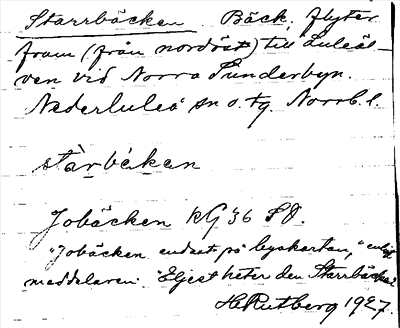 Starrbäcken Bäck, flyter
fram (från nordöst) till Luleäl-
ven vid Norra Sunderbyn.
Nederluleå sn o. tg. Norrb. l.
starbäkan
Jobäcken RG 36 SO.
"Jobäcken endast på byakartan," enligt
meddelaren. "Eljest heter den Starrbäcken"
H. Rutberg 1927.